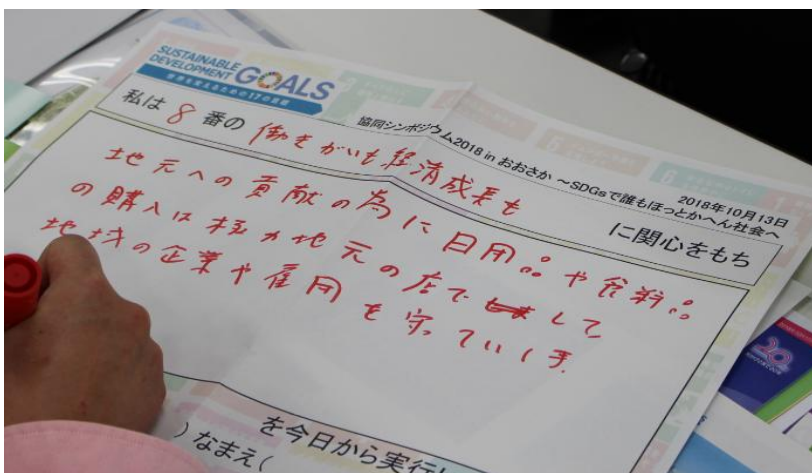 SUSTAINABLE
DEVELOPMENT GOALS
世界を変えるための17の目標
協同シンポジウム2018 in おおさか ～SDGsで誰もほっとかへん社会へ
2018年10月13日
私は 8 番の 働きがいも経済成長も に関心をもち
地元への貢献の為に日用品や食料品
の購入は極力地元の店でして
地域の企業や雇用を守っていし
を今日から実行し
)なまえ(
20